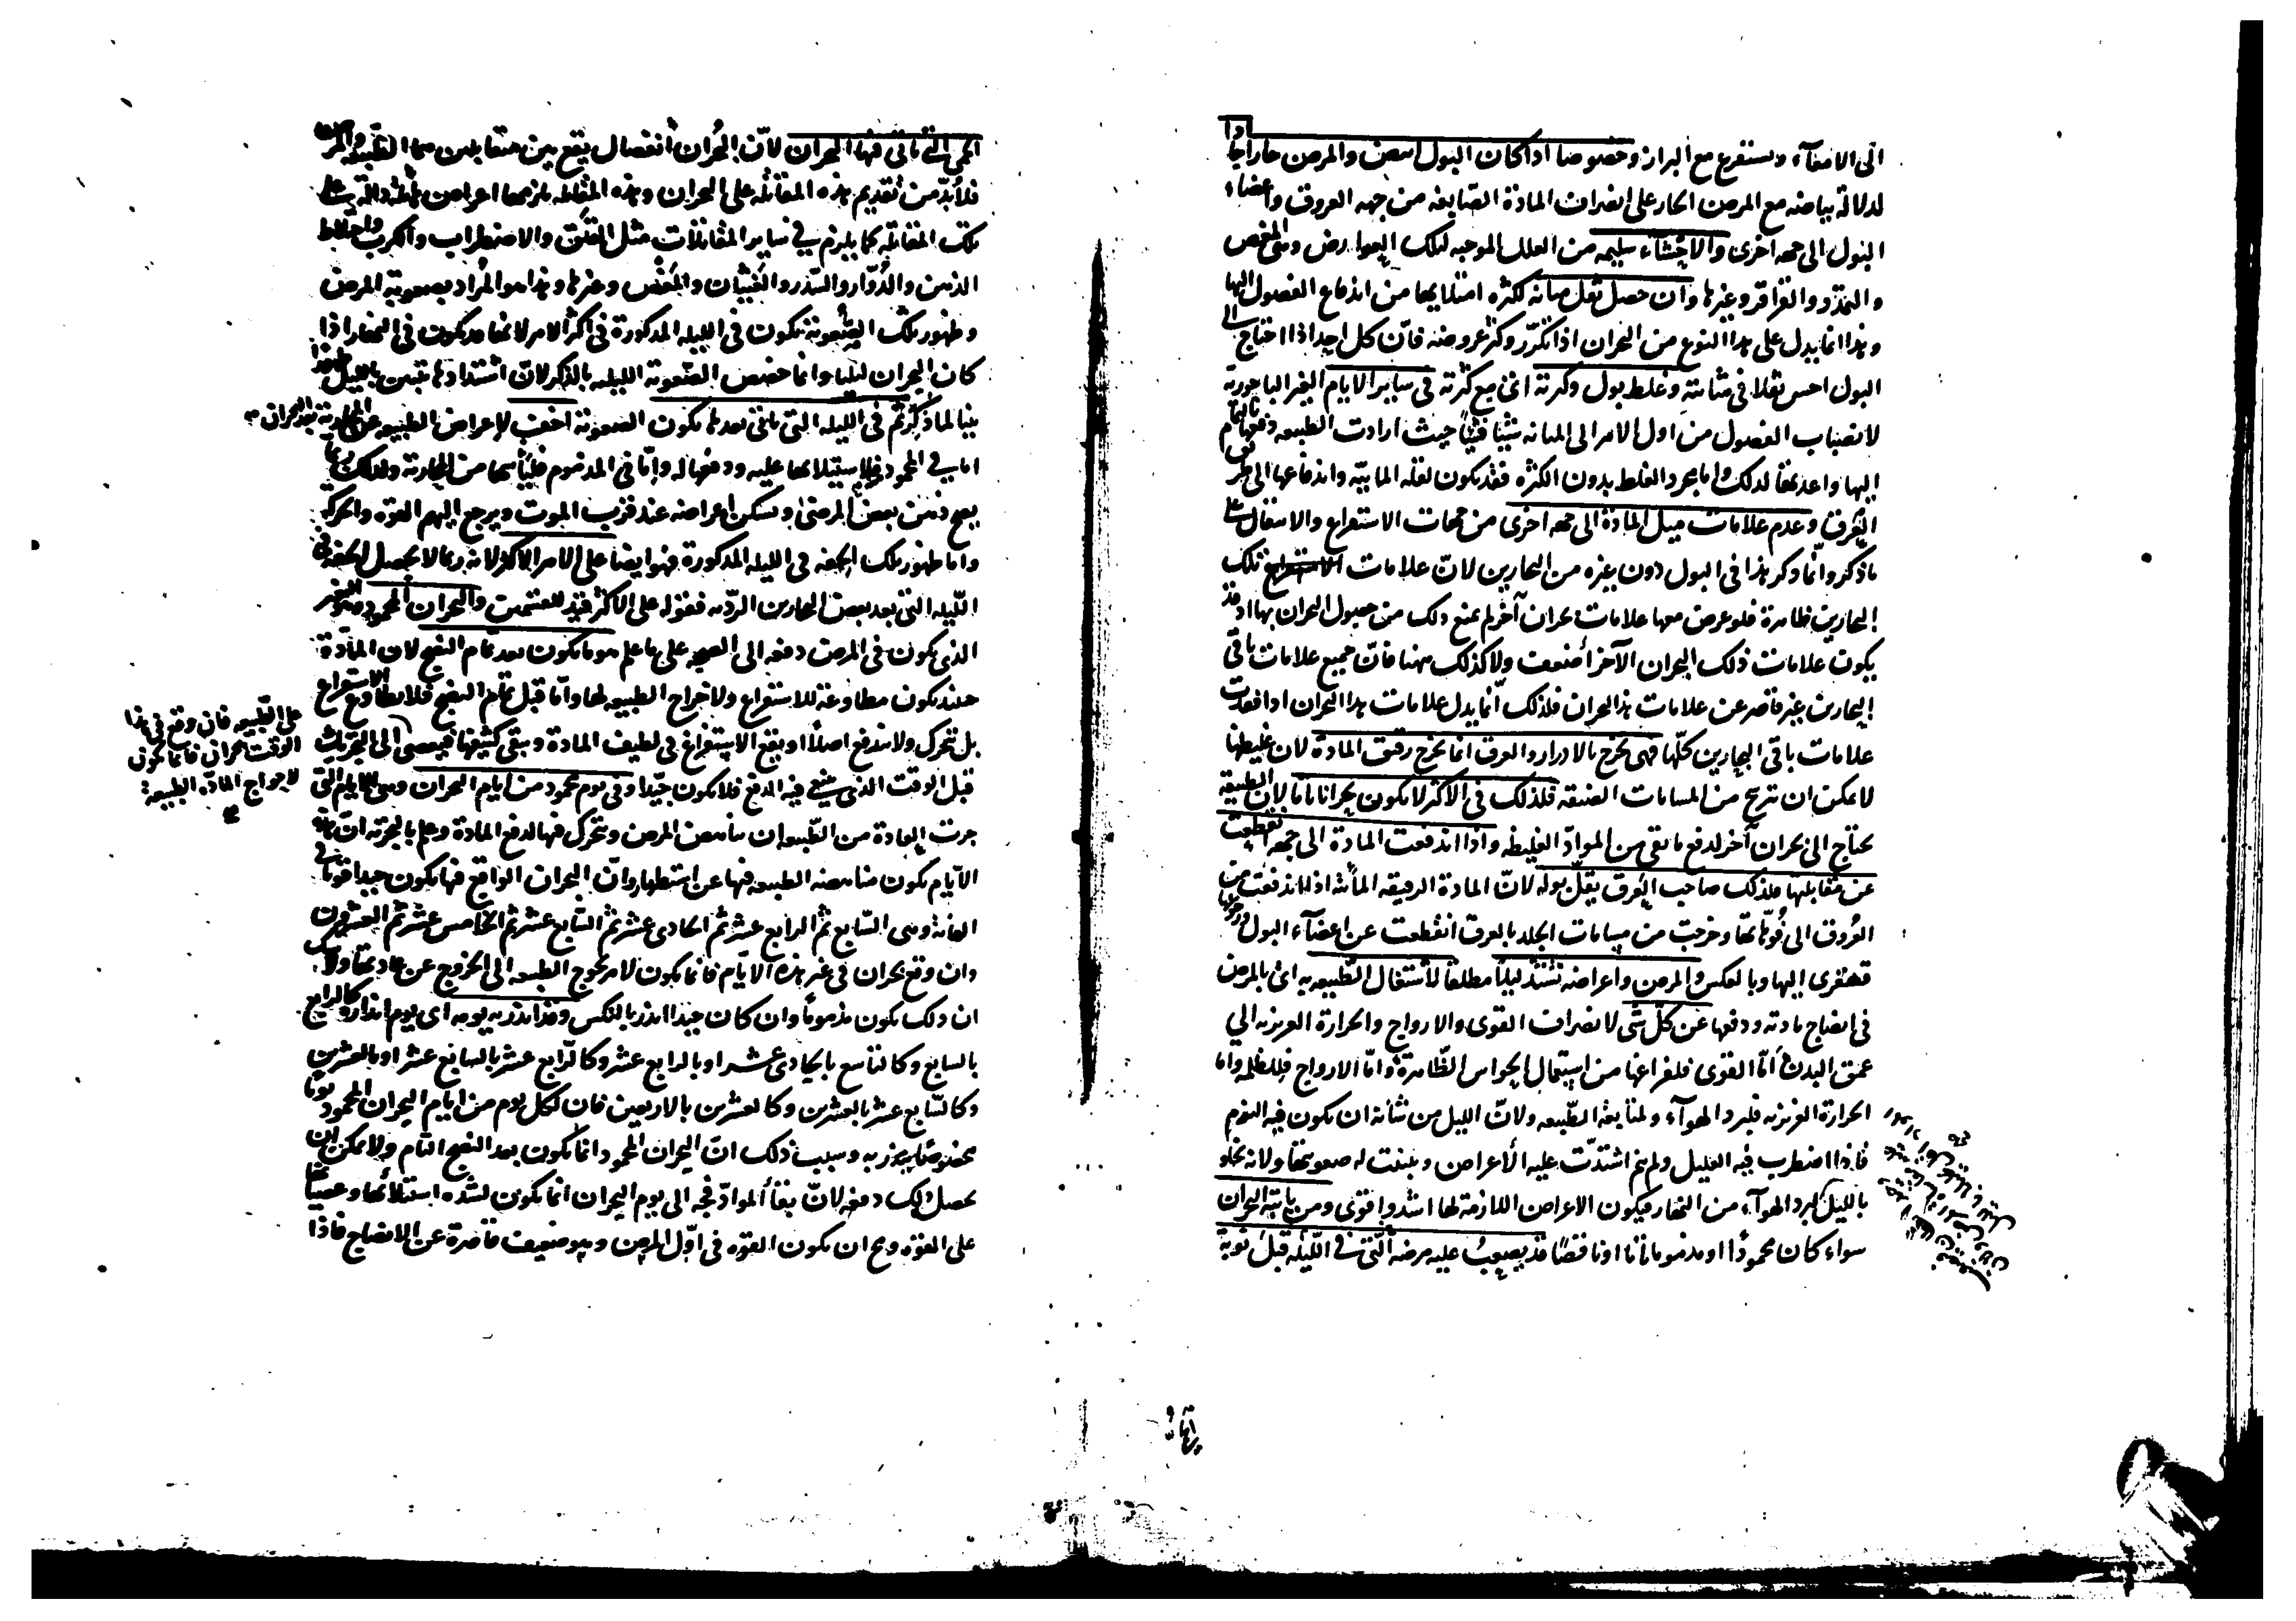 الى الامعآء ويستفرغ مع البراز وخصوصا اذا كان البول ابيض والمرض حارا جدا
لدلالة بياضه مع المرض الحار على انصراف المادة الصابغه من جهه العروق واعضاء
البول الى جهه اخرى والاحشآء سليمه من العلل الموجبه لتلك العوارض وهى المغص
والتمدد والقراقر وغيرها وان حصل ثقل مثانه لكثره امتلايها من اندفاع الفضول اليها
وهذا انما يدل على هذا النوع من البحران اذا تكرّر وكثر عروضه فانّ كل احد اذا احتاج الى
البول احس ثقلا فى مثانته وغلظ بول وكثرته اى مع كثرته فى ساير الايام الغير الباحورية
لانصباب الفضول من اول الامر الى المثانه شيئا فشيئا حيث ارادت الطبيعه دفعها
اليها واعدتها لذلك واما مجرد الغلظ بدون الكثره فقد يكون لقله المائيّه واندفاعها الى
العرق وعدم علامات ميل المادة الى جهه اخرى من جهات الاستفراغ والانتقال على
ما ذكر وانّما ذكر هذا فى البول دون غيره من البحارين لانّ علامات تلك
البحارين ظاهرة فلو عرض معها علامات بحران آخر لم يمنع ذلك من حصول البحران بها اذ قد
يكون علامات ذلك البحران الآخر أضعف ولا كذلك ههنا فانّ جميع علامات باقى
البحارين غير قاصر عن علامات هذا البحران فلذلك انّما يدل علامات هذا البحران اذا فقدت
علامات باقى البحارين كلّها فهى تخرج بالادرار والعرق انما يخرج رقيق المادة لان غليظها
لا يمكن ان ترشح من المسامات الضيقه فلذلك فى الاكثر لا يكون بحرانا تاما لان الطبيعة
يحتاج الى بحران آخر لدفع ما بقى من الموادّ الغليظه واذا اندفعت المادة الى جهه انقطعت
عن مقابلها فلذلك صاحب العرق يقلّ بوله لانّ المادة الرقيقه المائيّه اذا اندفعت من
العروق الى فوّهاتها وخرجت من مسامات الجلد بالعرق انقطعت عن اعضآء البول
قهقرى اليها وبالعكس والمرض واعراضه تشتد ليلا مطلقا لاشتغال الطّبيعه به اى بالمرض
فى انضاج مادته ودفعها عن كل شى لانصراف القوى والارواح والحرارة الغريزيه الي
عمق البدن أمّا القوى فلفراغها من استعمال الحواس الظّاهرة وامّا الارواح فللظلمه واما
الحرارة الغريزيه فلبرد الهوآء ولمتابعة الطّبيعه ولانّ الليل من شانه ان يكون فيه النوم
فاذا اضطرب فيه العليل ولم ينم اشتدّت عليه الأعراض وتبينت له صعوبتها ولانه يخلو
بالليل لبرد الهوآء من النهار فيكون الاعراض اللازمة لها اشد واقوى ومن ياتيه البحران
سواء كان محمودًا او مذموما تامّا او ناقصًا قد يصعب عليه مرضه الّتى فى اللّيله قبل نوبة
الحمى التى تاتى فيها البحران لانّ البُحران أنفصال يقع بين متقابلين هما الطّبيعه والمرض
فلابُدّ من تقديم هذه المقاتله على البحران وهذه المقاتله يلزمها اعراض هائلة دالّة على
تلك المقاتله كما يلزم فى ساير المقاتلات مثل القلق والاضطراب والكرب واختلاط
الذهن والدُّوار والسَّدر والغثيان والمغص وغيرها وهذا هو المُراد بصعوبة المرض
وظهور تلك الصّعوبة يكون فى الليله المذكورة فى أكثر الامر لانها قد يكون فى النهار اذا
كان البحران ليليا وانما خصص الصّعوبة الليليه بالذكر لانّ اشتدادها يثبت بالليل
بينا لما ذكر ثم فى الليله التى ياتى بعدها يكون الصعوبة اخف لاعراض الطبيعه عن المحاربة بعد البحران
اما فى المحمود فلاستيلائها عليه ودفعها له وامّا فى المذموم فليأسها من المحاربة ولذلك ربما
يصح ذهن بعض المرضى ويسكن اعراضه عند قرب الموت ويرجع اليهم القوه والحركه
واما ظهور تلك الخفه فى الليله المذكورة فهو ايضا على الامر الاكثر لانه ربما لا يحصل الخفه فى
اللّيله التى بعد بعض البحارين الردّيه فقوله على الاكثر قيد للقسمين والبحران المحمود
الذى يكون فى المرض دفعه الى الصحه على ما علم هو ما يكون بعد تمام النضج لان المادّة
حينئذ يكون مطاوعة للاستفراغ ولاخراج الطبيعه لها وامّا قبل تمام النضج فلا يطاوع الاستفراغ
بل تتحرك ولا يندفع اصلا او يقع الاستفراغ فى لطيف المادة ويبقى كثيفها فيعصى الى التحريك
قبل الوقت الذى ينبغى فيه الدفع فلا يكون جيّدا وفى يوم محمود من ايام البحران وهى الايام التى
جرت العادة من الطّبيعه ان يناهض المرض وتتحرك فيها لدفع المادة وعلم بالتجربة انّ هذه
الايّام يكون مناهضه الطبيعه فيها عن استظهار وانّ البحران الواقع فيها يكون جيدا قويا فى
الغاية وهى السّابع ثمّ الرابع عشر ثم الحادى عشر ثم السّابع عشر ثم الخامس عشر ثم العشرون
وان وقع بحران فى غير هذه الايّام فانما يكون لامر يحوج الطبيعه الى الخروج عن عادتها ولا شك
ان ذلك يكون مذموما وان كان جيدا انذر بالنكس وقد انذر به يومه اى يوم انذاره كالرابع
بالسابع وكالتاسع بالحادى عشر او بالرابع عشر وكالرّابع عشر بالسابع عشر او بالعشرين
وكالسّابع عشر بالعشرين وكالعشرين بالاربعين فان لكل يوم من ايام البحران المحمود يومًا
مخصوصًا ينذر به وسبب ذلك انّ البحران المحمود انما يكون بعد النضج التام ولا يمكن ان
يحصل ذلك دفعه لانّ بقآ الموادّ فجه الى يوم البحران انما يكون لشده استيلائها وعصيانها
على القوه ويجب ان يكون القوه فى اوّل المرض وهو ضعيف قاصرة عن الانضاج فاذا
على الطّبيعه فان وقع فى هذا
الوقت بحران فانما يكون
لاحواج المادّة الطبيعه